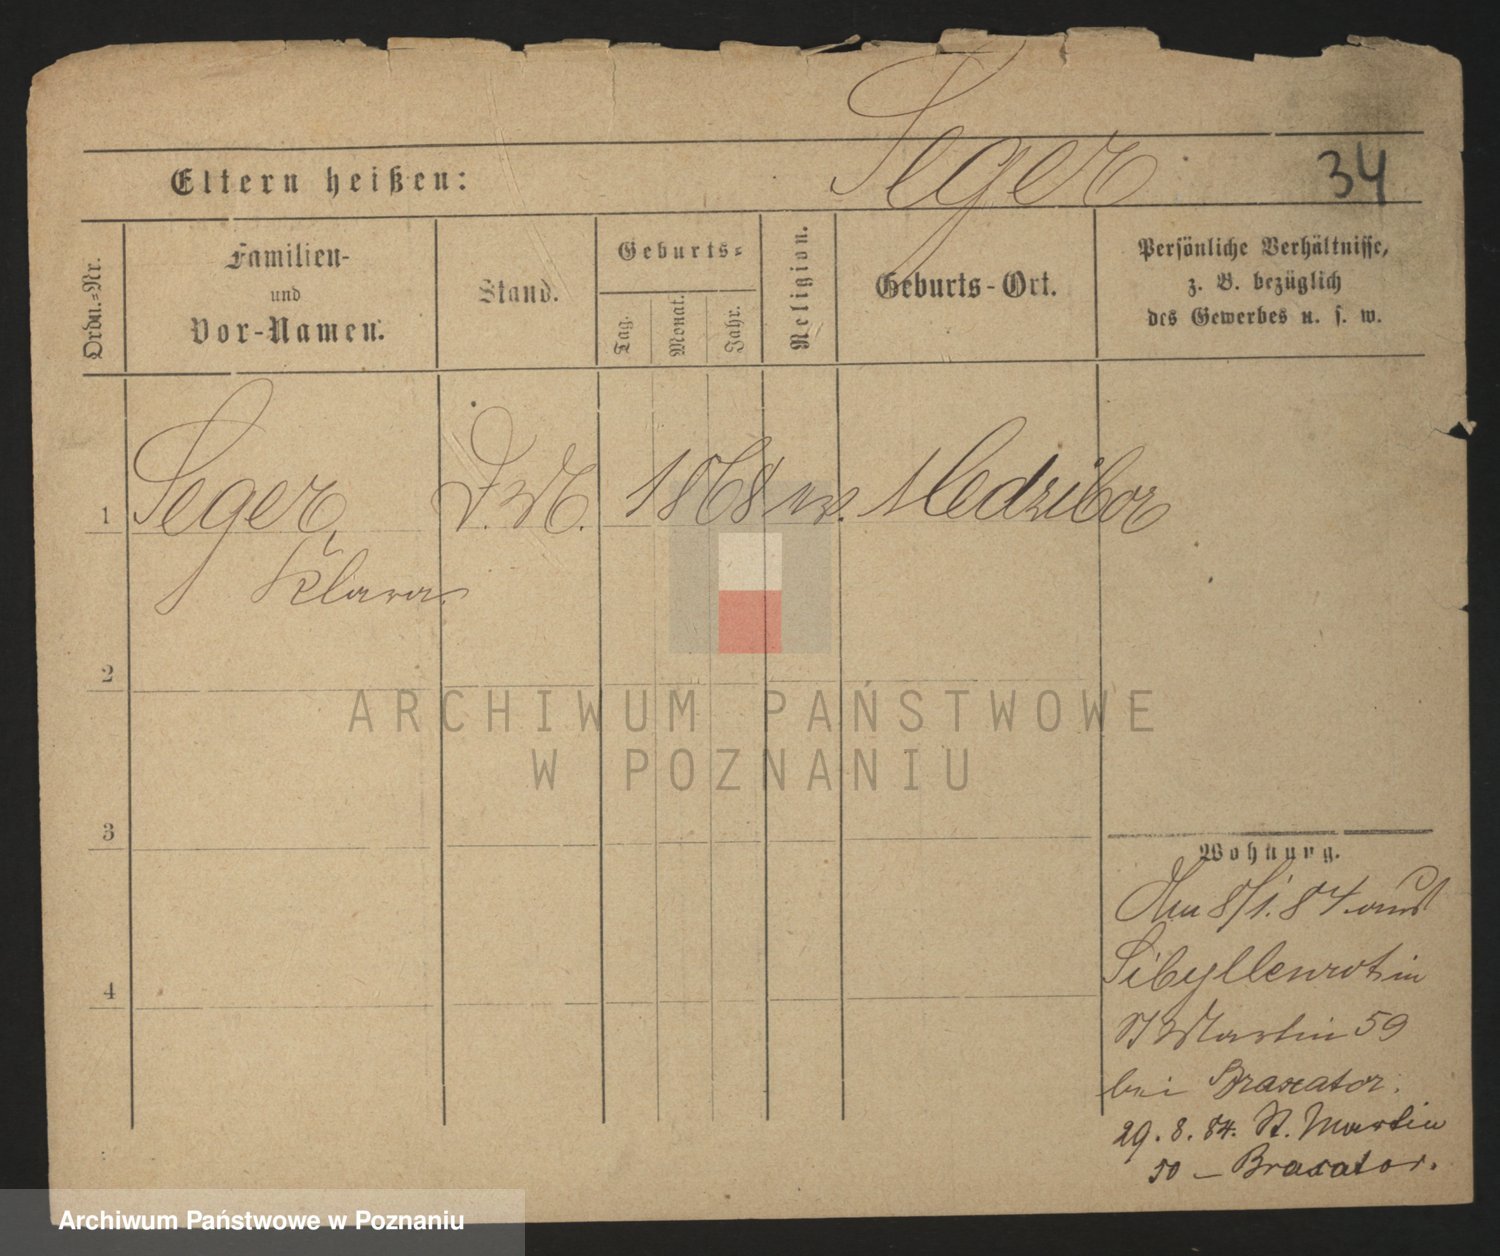 Seger
34
Eltern heißen:
Ordn.=Nr.
Familien-
und
Vor-Namen.
Stand.
Geburts=
Tag.
Monat.
Jahr.
Religion.
Geburts-Ort.
Persönliche Verhältnisse,
z. B. bezüglich
des Gewerbes u. s. w.
1 Seger, D.M. 1868 ev. Medzibor
Klara
2
3
4
Wohnung.
Am 8/1. 84 aus
Sibyllenort in
St Martin 59
bei Braxator.
29. 8. 84. St. Martin
50 – Braxator.
ARCHIWUM PAŃSTWOWE
W POZNANIU
Archiwum Państwowe w Poznaniu